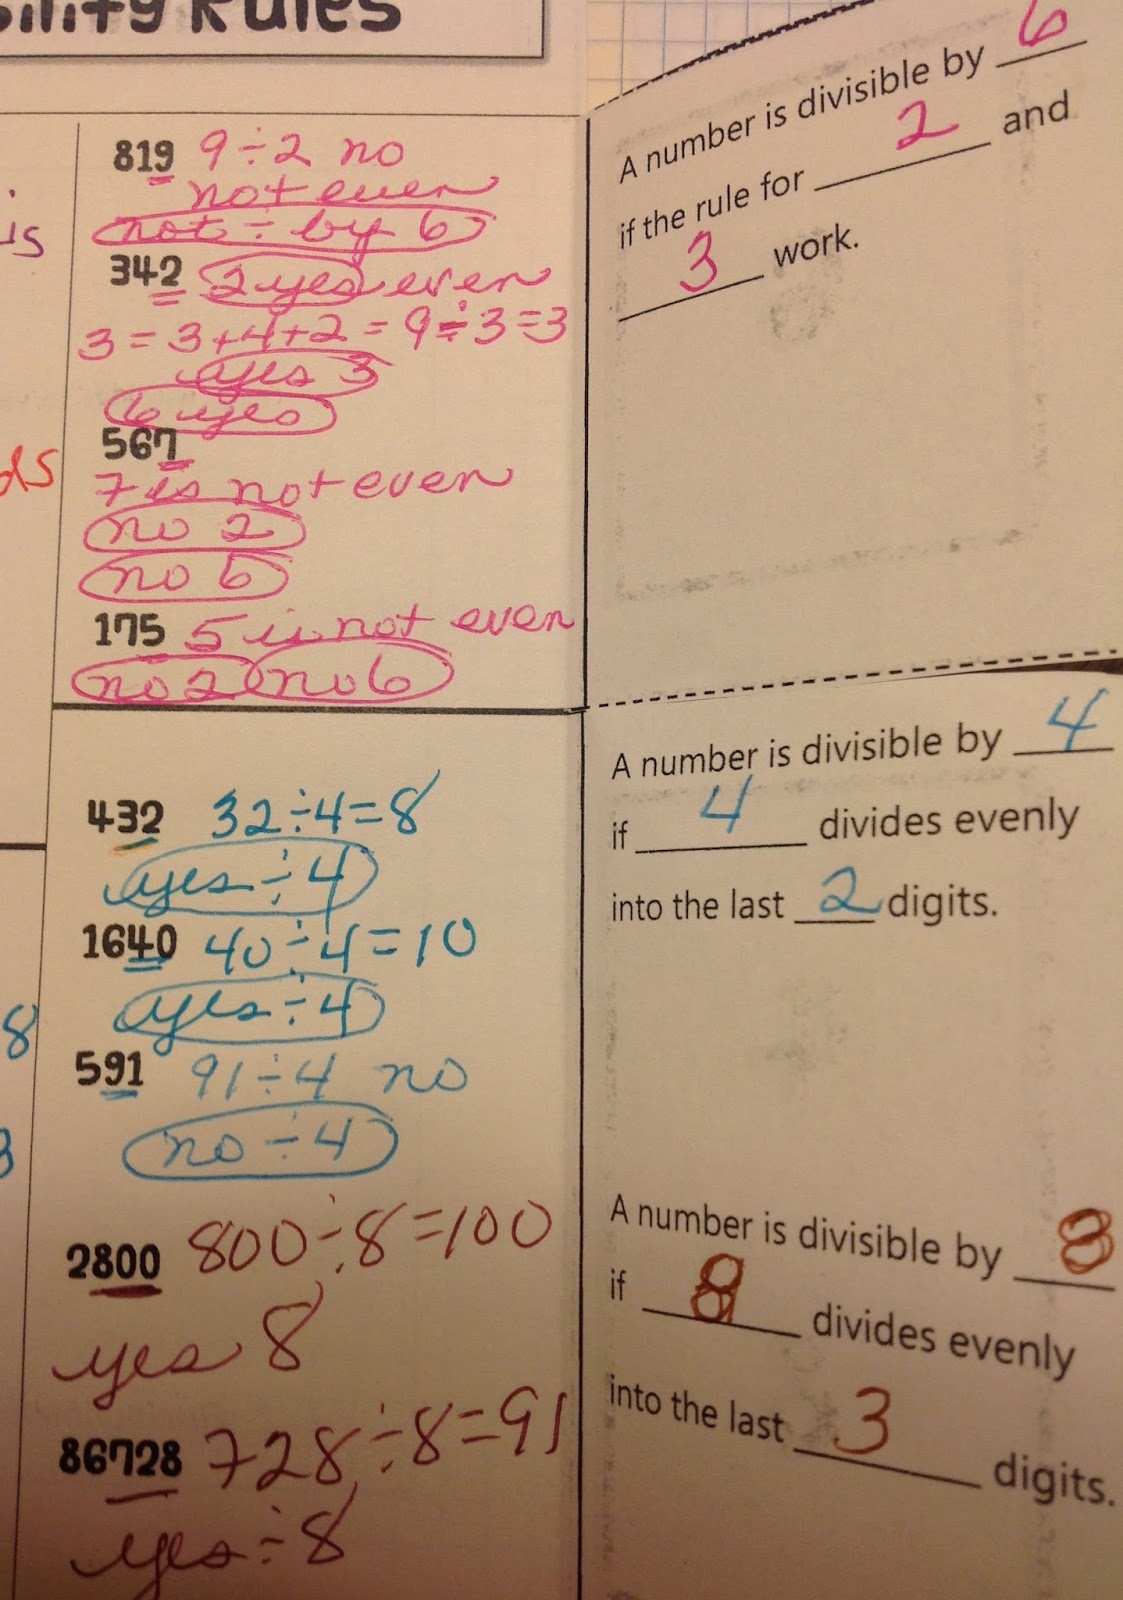 ility Rules
is
ds
8
3
819 9 ÷ 2 no
not even
not ÷ by 6
342 2 yes even
3 = 3+4+2 = 9 ÷ 3 = 3
yes 3
6 yes
567
7 is not even
no 2
no 6
175 5 is not even
no 2 no 6
432 32 ÷ 4 = 8
yes ÷ 4
1640 40 ÷ 4 = 10
yes ÷ 4
591 91 ÷ 4 no
no ÷ 4
2800 800 ÷ 8 = 100
yes 8
86728 728 ÷ 8 = 91
yes ÷ 8
A number is divisible by 6
if the rule for 2 and
3 work.
A number is divisible by 4
if 4 divides evenly
into the last 2 digits.
A number is divisible by 8
if 8 divides evenly
into the last 3 digits.